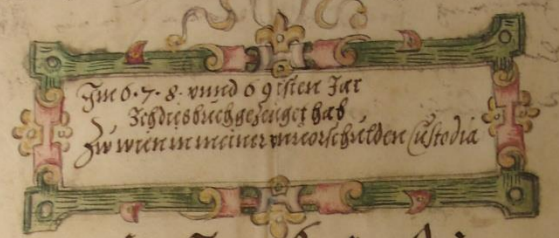 Im 6 · 7 · 8 · vnnd 09isten Jar
Ich dies buch gezeuget hab
Zw wien in meiner vnuorschulden Custodia